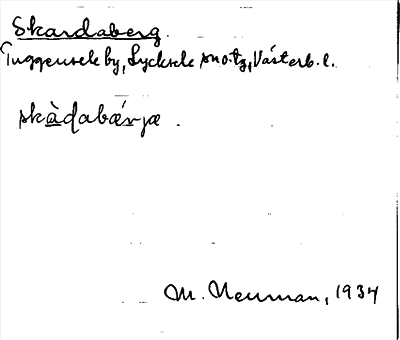 Skardaberg.
Tuggensele by, Lycksele snotg, Västerb. l.
skàdabǽrjæ.
M. Neuman, 1934